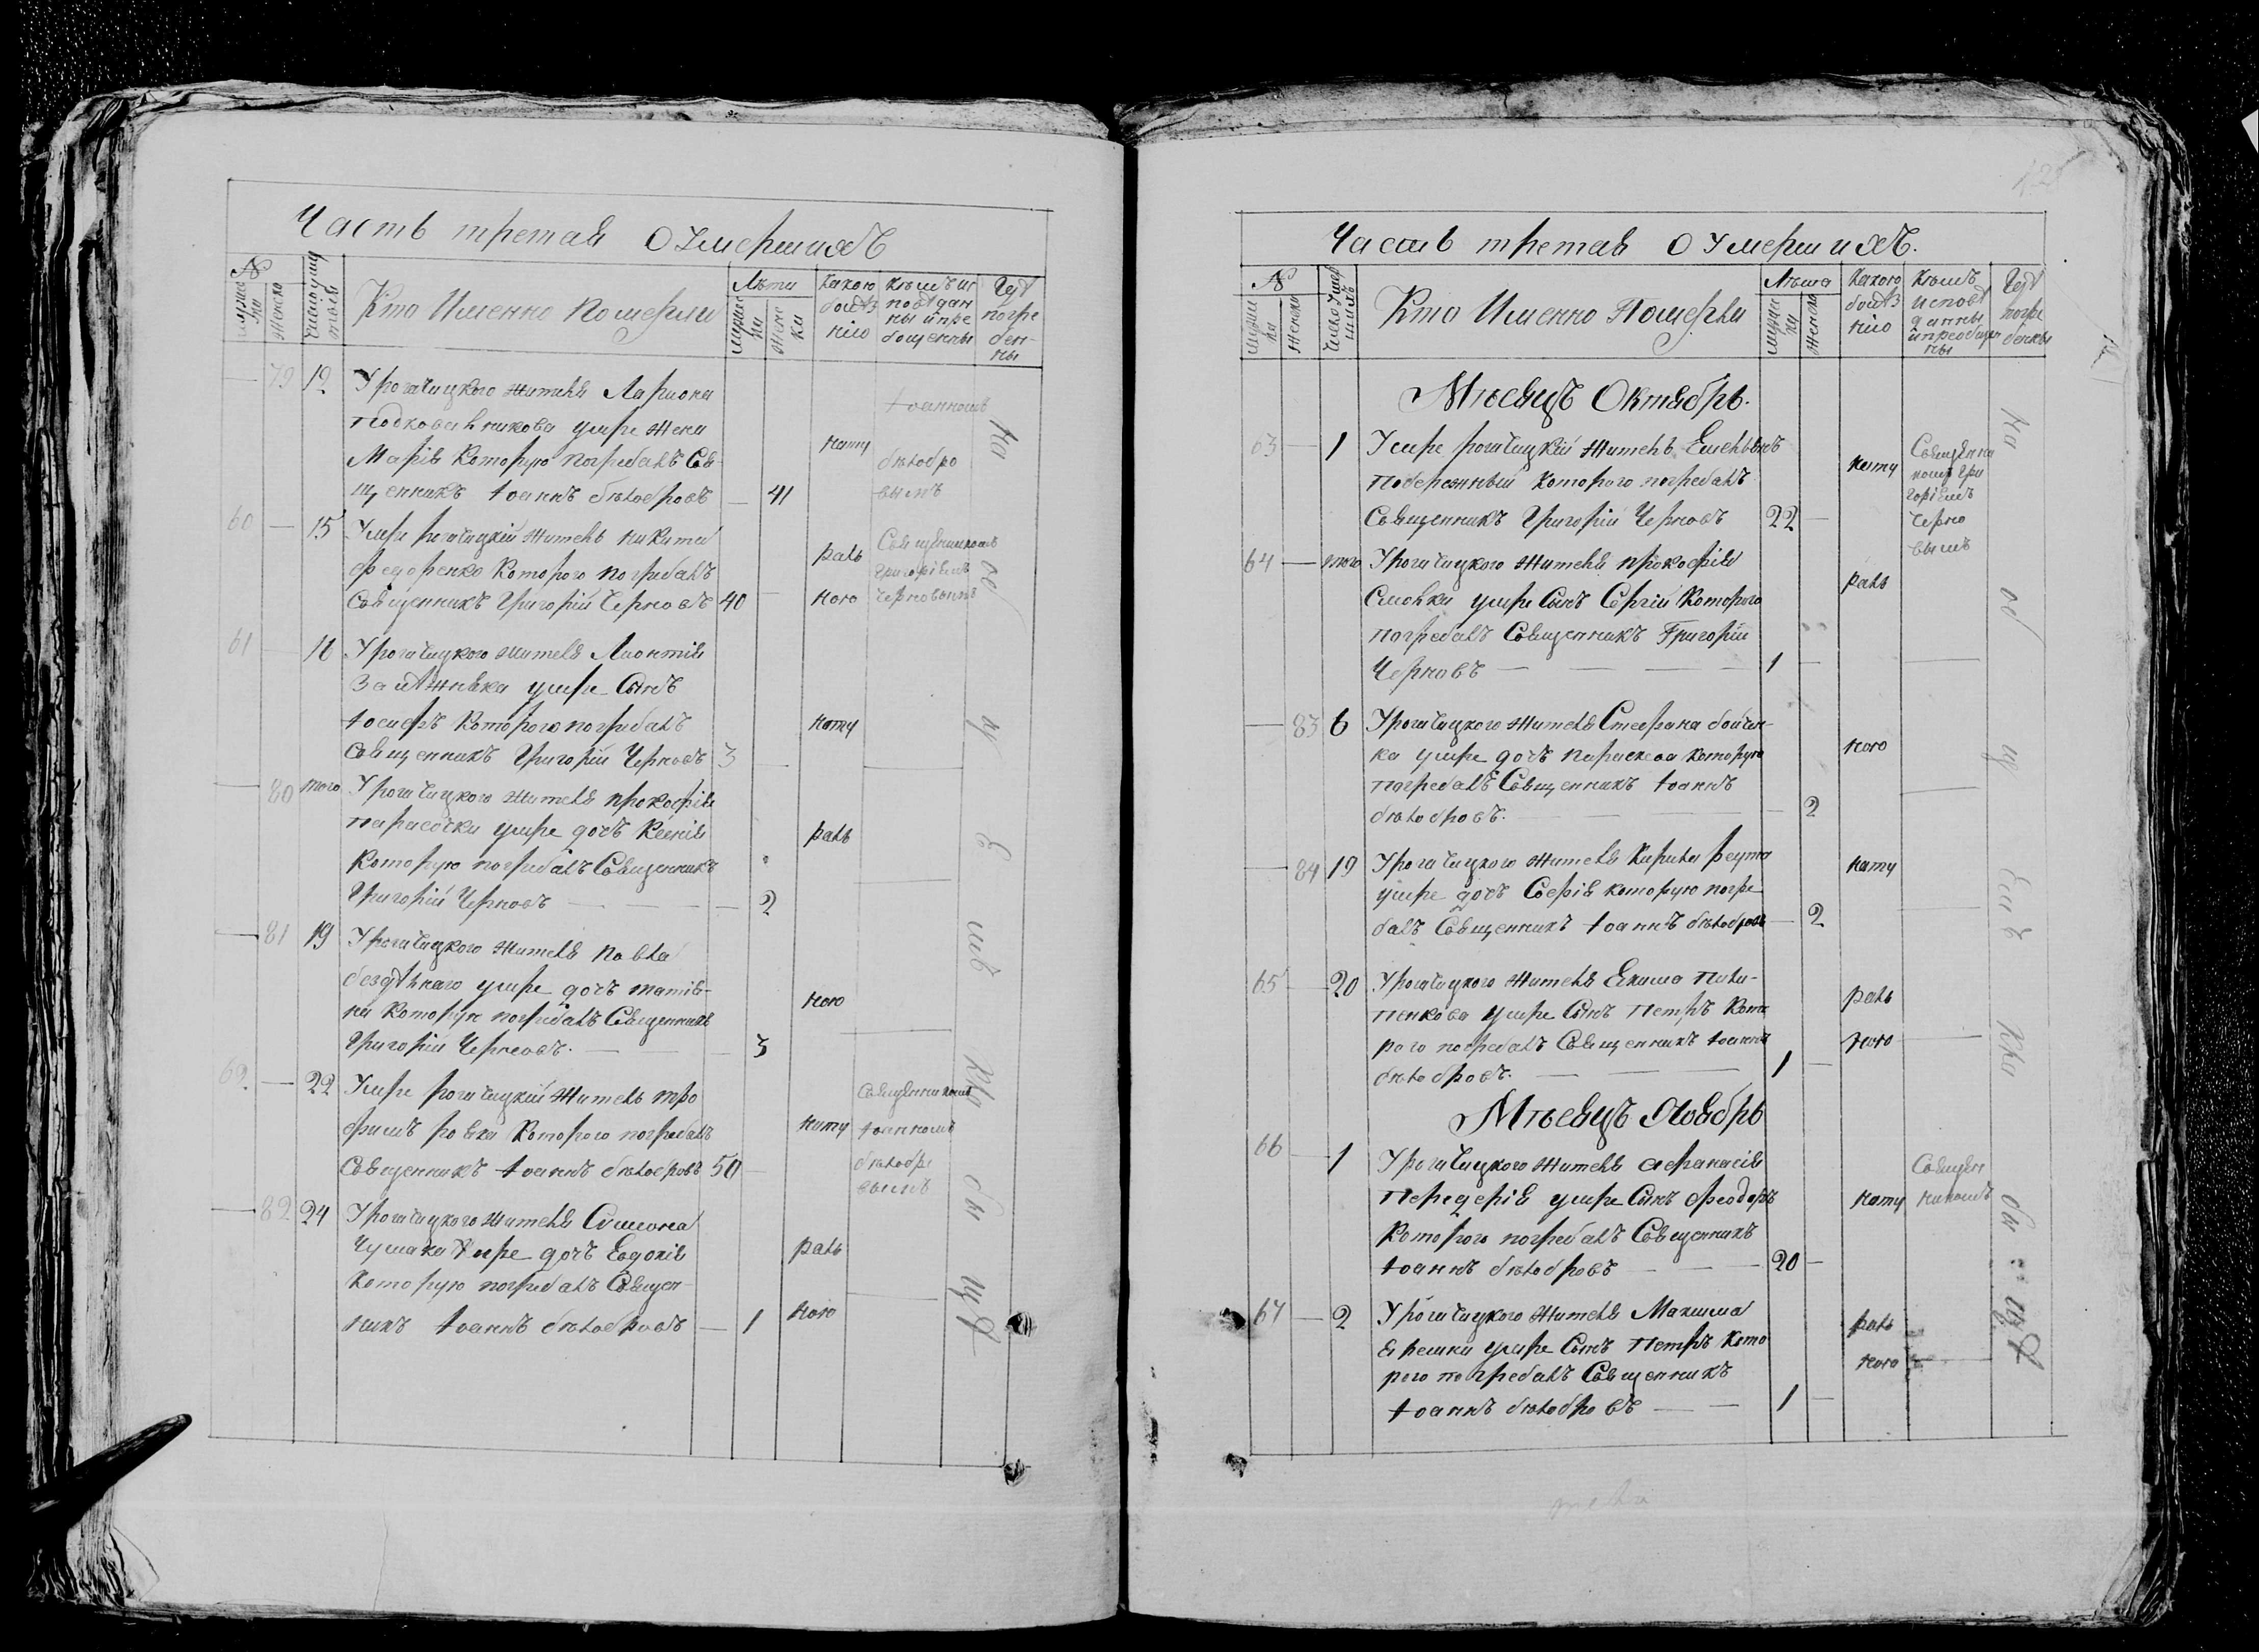 Часть третая О Умершихъ
№
мужес
ка
женско
Число умер
Кто Именно Померли
Лѣта
мужес
ки
женс
ки
Какою
болѣз
нію
Кѣмъ ис
повѣдан
ны и прі
общенны
Гдѣ
погре
бен-
ны
79 12 У рогачицкого жителя Лариона
умре жена
Марія которую погребалъ Свя-
щенникъ Іоаннъ бѣлобровъ — 41
кашу
Іоанномъ
бѣлобро
вымъ
60 — 15 Умре рогачицкій житель никита
федоренко которого погребалъ
Священникъ Григорій Черновъ 40 —
раль
ною
Священникомъ
Григоріемъ
Черновымъ
61 — 16 У рогачицкого жителя Лионтія
умре Сынъ
Іосифъ которого погребалъ
Священникъ Григорій Черновъ 3 —
кашу
— 80 того У рогачицкого жителя прокофія
парасочки умре дочъ Ксенія
которую погребалъ Священникъ
Григорій Черновъ — 2
раль
— 81 19 У рогачицкого жителя павла
бездѣлнаго умре дочъ татія-
на которую погребалъ Священникъ
Григорій Черновъ. — 3
ною
62 — 22 Умре рогачицкій житель тро
фимъ которого погребалъ
Священникъ Іоаннъ бѣлобровъ 50 —
кашу
Священникомъ
Іоанномъ
бѣлобро
вымъ
— 82 24 У рогачицкого жителя Симона
Чумака умре дочъ Евдокія
которую погребалъ Священ-
никъ Іоаннъ бѣлобровъ — 1
раль
ною
На об щ е мъ кла дби щѣ
Часть третая О Умершихъ.
№
мужес
ка
женско
Число умер
шихъ
Кто Именно Померли
Лѣта
мужес
ки
женско
Какою
болѣз
нію
Кѣмъ
исповѣ
данны
и преобщен
ны
Гдѣ
погре
бенны
Мѣсяцъ Октябрь.
63 — 1 Умре рогачицкій житель Емельянъ
Побережный которого погребалъ
Священникъ Григорій Черновъ 22 —
кашу
Священни
комъ Гри
горіемъ
Черно
вымъ
64 — того У рогачицкого жителя прокофія
умре Сынъ Сергій которого
погребалъ Священникъ Григорій
Черновъ — 1 —
раль
— 83 6 У рогачицкого жителя Стефана бойчен-
ка умре дочъ параскева которую
погребалъ Священникъ Іоаннъ
бѣлобровъ. — 2
ною
— 84 19 У рогачицкого жителя Кирила реута
умре дочъ Софія которую погре
балъ Священникъ Іоаннъ бѣлобровъ — 2
кашу
65 — 20 У рогачицкого жителя Екима Пили-
пенкова умре Сынъ Петръ кото
рого погребалъ Священникъ Іоаннъ
бѣлобровъ. — 1 —
раль
ною
Мѣсяцъ Ноябрь
66 — 1 У рогачицкого жителя афанасія
Передерія умре Сынъ феодоръ
которого погребалъ Священникъ
Іоаннъ бѣлобровъ — 20 —
кашу
Священ
никомъ
67 — 2 У рогачицкого жителя Максима
умре Сынъ Петръ кото
рого погребалъ Священникъ
Іоаннъ бѣлобровъ — 1 —
раль
ною
На об щ емъ кла дби щѣ